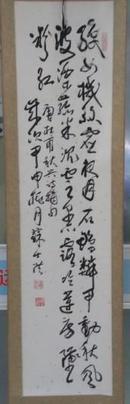 織女機絲虛夜月石鯨鱗甲動秋風
波漂菰米沉雲黑露冷蓮房墜
粉紅
杜甫秋興詩
甲申 月